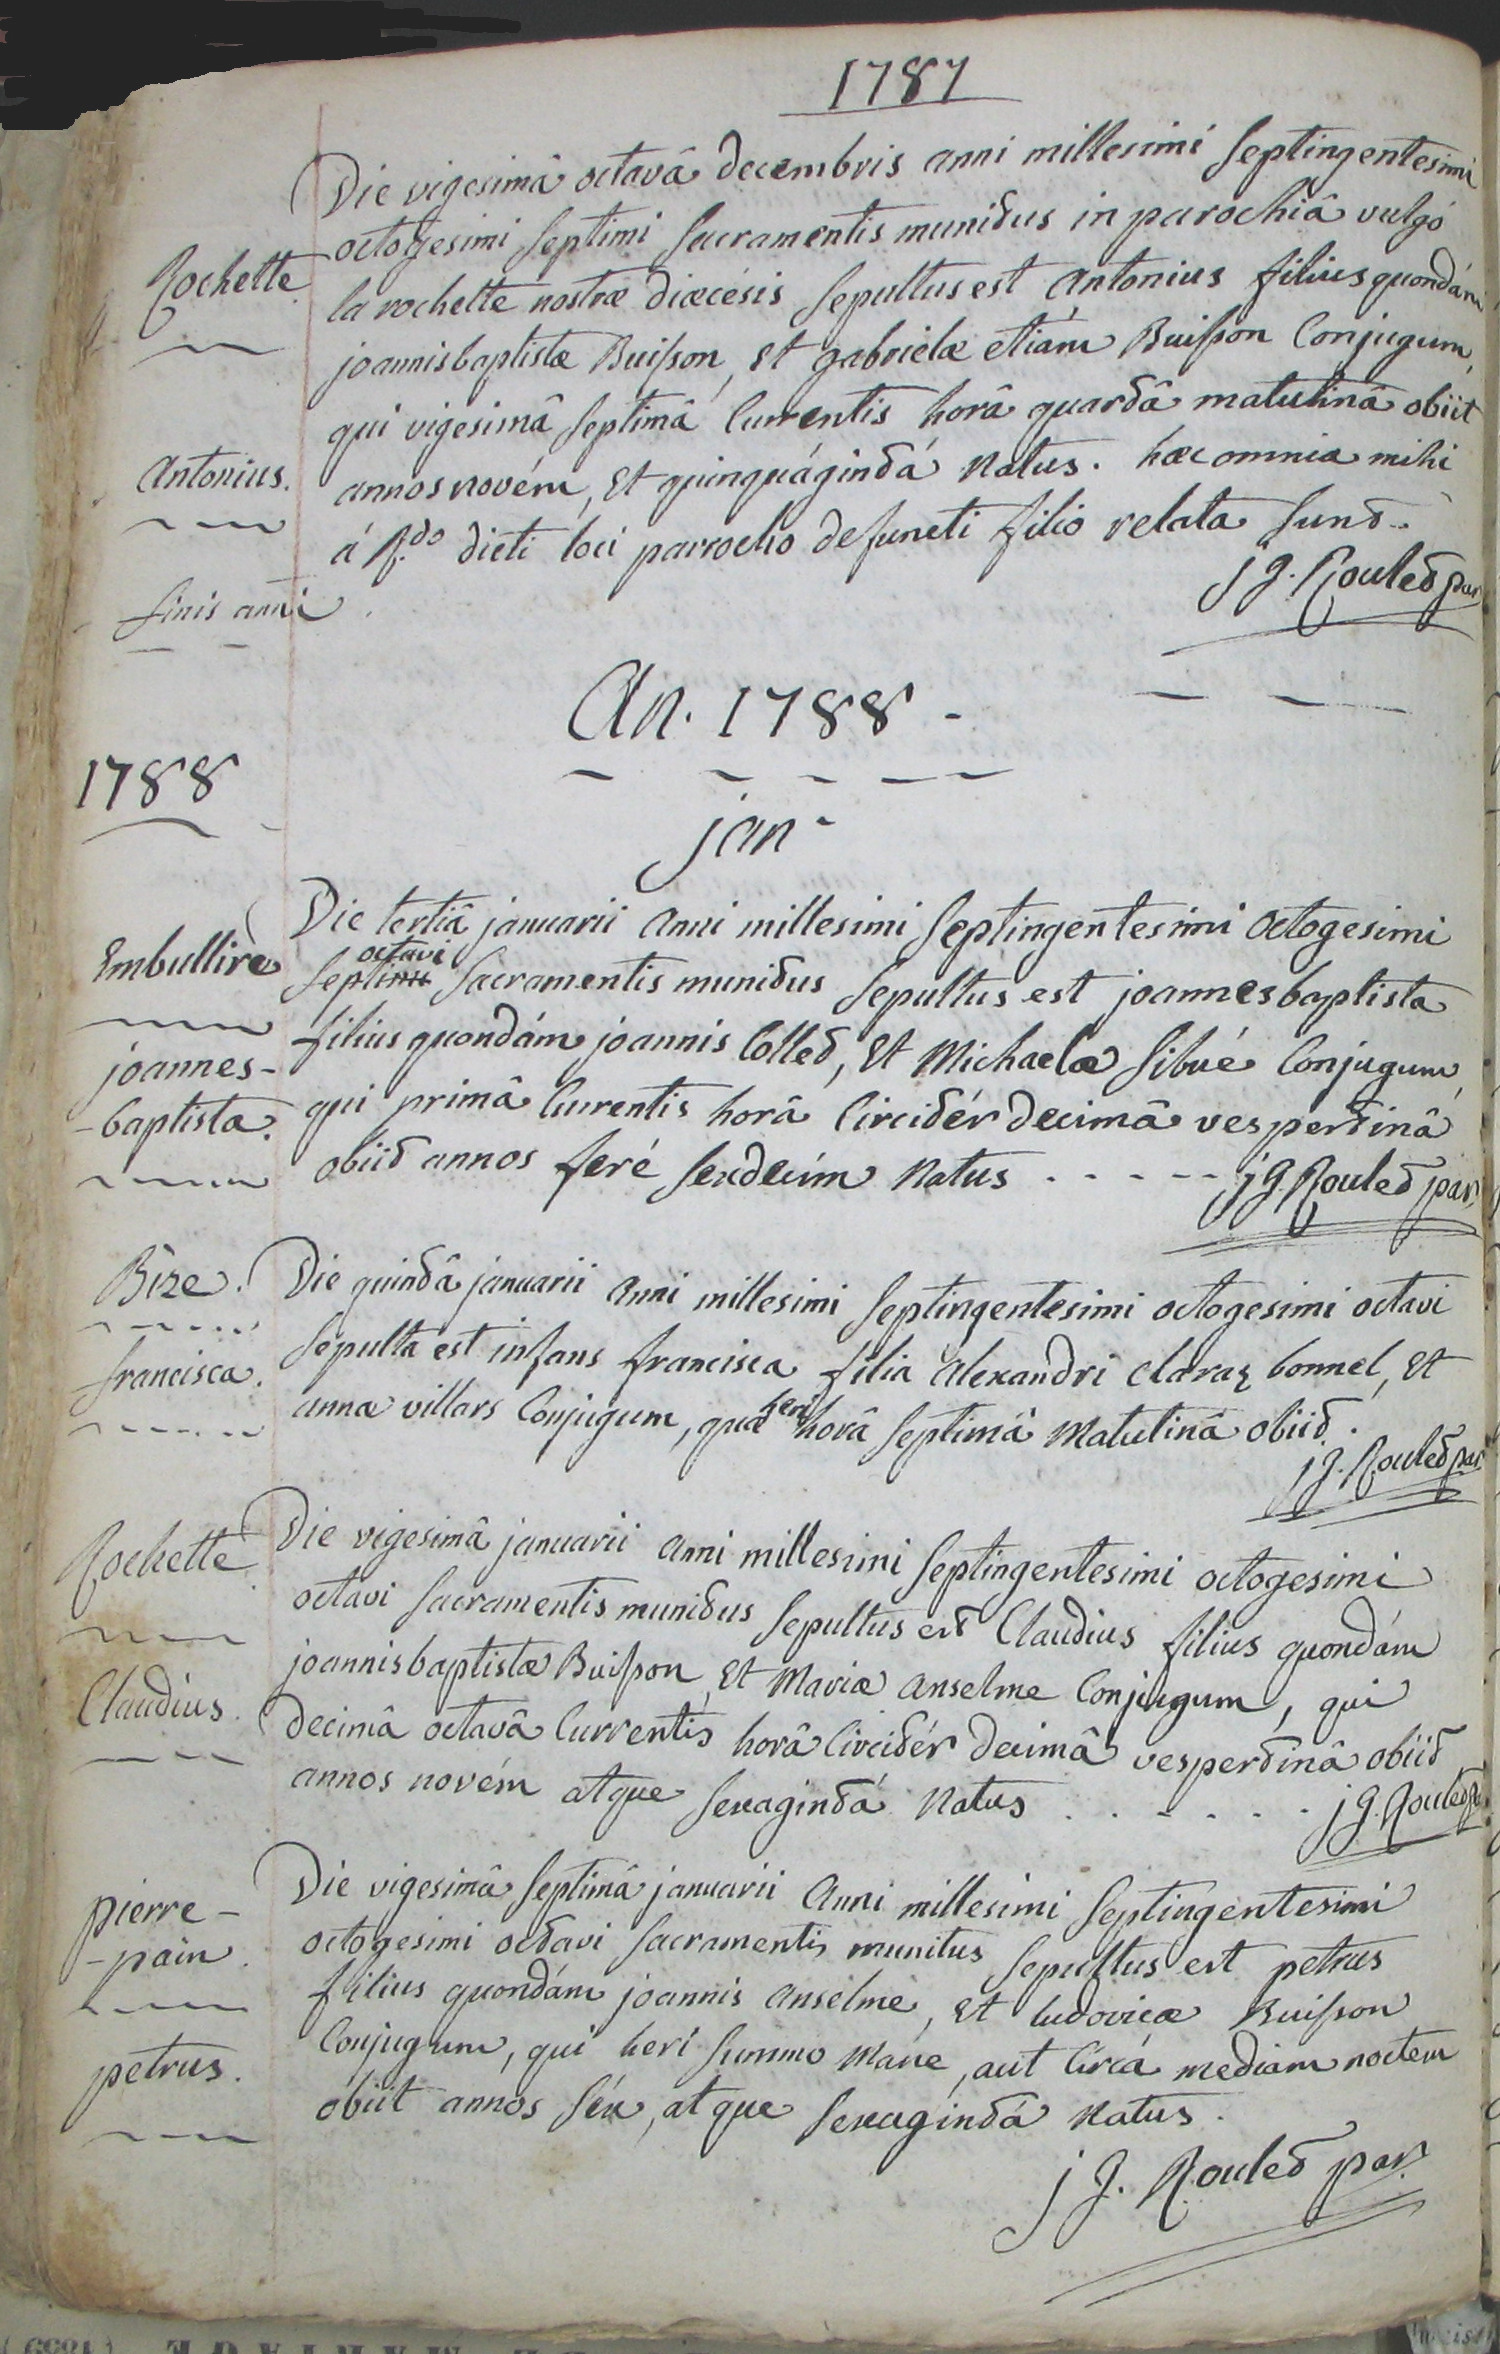 1787
Die vigesimâ octavâ decembris anni millesimi septingentesimi
octogesimi septimi sacramentis munitus in parochiâ vulgó
Rochette
la rochette nostræ diæcésis sepultus est Antonius filius quondám
joannisbaptistæ Buisson, et gabrielæ etiám Buisson Conjugum,
qui vigesimâ septimâ Currentis horâ quartâ matutinâ obiit
Antonius.
annos novém, et quinquágintá natus. hæc omnia mihi
á R.do dicti loci parrocho defuncti filio relata sunt.
finis anni
j g. Roulet par
An. 1788 -
1788
jan-
Die tertiâ januarii anni millesimi septingentesimi octogesimi
Embullire
octavi
septimi sacramentis munitus sepultus est joannesbaptista
joannes-
filius quondám joannis Collet, et Michaelæ sibué Conjugum,
-baptista.
qui primâ Currentis horâ Circitér decimâ vespertinâ
obiit annos feré sexdecim natus . - - - - j g. Roulet par,
Bize.
Die quintâ januarii anni millesimi septingentesimi octogesimi octavi
francisca.
sepulta est infans francisca filia alexandri claraz bonnel, et
annæ villars Conjugum, quæ heri horâ septimâ matutinâ obiit.
j g. Roulet par
Rochette
Die vigesimâ januarii anni millesimi septingentesimi octogesimi
octavi sacramentis munitus sepultus est Claudius filius quondám
Claudius.
joannisbaptistæ Buisson, et Mariæ anselme Conjugum, qui
decimâ octavâ Currentis horâ Circitér decimâ vespertinâ obiit
annos novém atque sexagintá natus . . - . - . . j g. Roulet
Die vigesimâ septimâ januarii anni millesimi septingentesimi
pierre-
octogesimi octavi sacramentis munitus sepultus est petrus
-pain.
filius quondám joannis anselme, et ludovicæ Buisson
petrus.
Conjugum, qui heri summo mane, aut Circá mediam noctem
obiit annos séx, atque sexagintá natus.
j g. Roulet par.